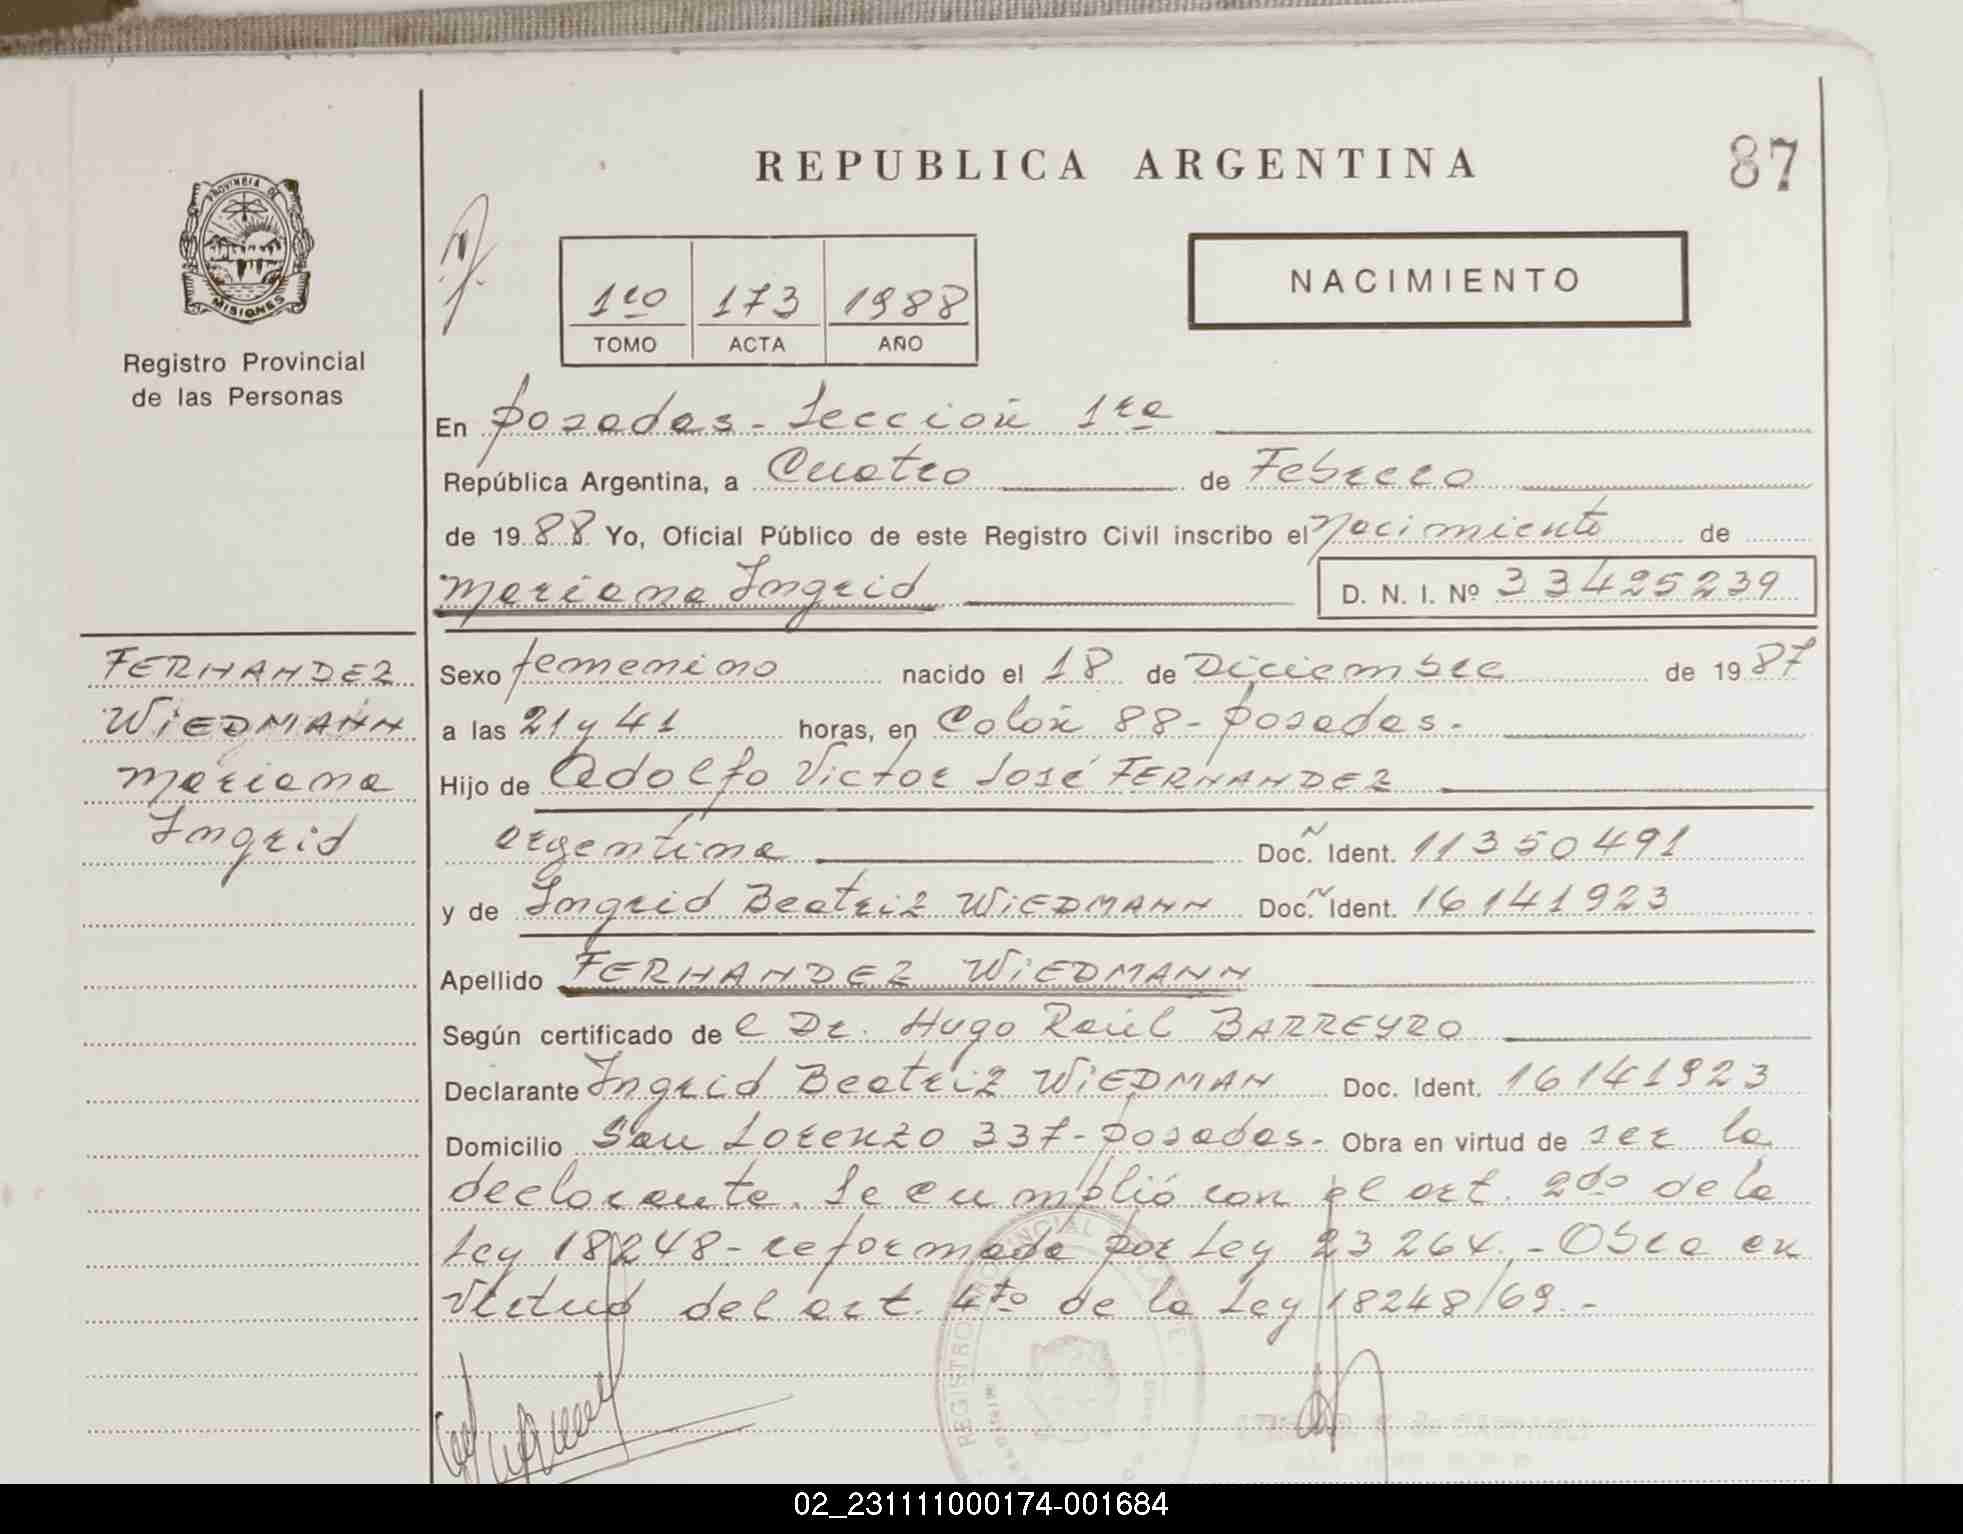 REPUBLICA ARGENTINA
87
PROVINCIA DE
MISIONES
Registro Provincial
de las Personas
1ro 173 1988
TOMO ACTA AÑO
NACIMIENTO
En Posadas - Sección 1ra
República Argentina, a Cuatro de Febrero
de 1988 Yo, Oficial Público de este Registro Civil inscribo el Nacimiento de
Mariana Ingrid D. N. I. Nº 33425239
FERNANDEZ
WIEDMANN
Mariana
Ingrid
Sexo femenino nacido el 18 de Diciembre de 1987
a las 21 y 41 horas, en Colón 88 - Posadas.-
Hijo de Adolfo Victor José FERNANDEZ
argentina Doc. Ident. 11350491
y de Ingrid Beatriz WIEDMANN Doc. Ident. 16141923
Apellido FERNANDEZ WIEDMANN
Según certificado de el Dr. Hugo Raúl BARREYRO
Declarante Ingrid Beatriz WIEDMAN Doc. Ident. 16141923
Domicilio San Lorenzo 337 - Posadas.- Obra en virtud de ser la
declarante. Se cumplió con el art. 2do de la
Ley 18248 - reformada por Ley 23264.- Obra en
virtud del art. 4to de la Ley 18248/69.-
REGISTRO PROVINCIAL DE LAS PE
02_231111000174-001684